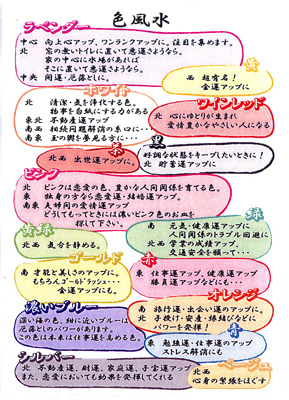 色風水
ラベンダー
中心 向上心アップ、ワンランクアップに。注目を集めます。
北 窓の無いトイレに置いて悪運さようなら。
家の中心に水場があれば
そこに置いて悪運さようなら。
中央 開運・厄落としに。
黄
西 超有名!
金運アップに
ホワイト
北 清潔・気を浄化する色。
物事を白紙にする力がある
東北 不動産運アップ
南西 相続問題解消の糸口に…
南東 玉の輿を夢見る方に…
ワインレッド
北 心にゆとりが生まれ
愛情豊かなやさしい人になる
茶
北西 出世運アップに。
黒
好調な状態をキープしたいときに!
北 貯蓄運アップに
ピンク
北 ピンクは恋愛の色、豊かな人間関係を育てる色。
東 独身の方なら恋愛運・結婚運アップ。
南東 夫婦間の愛情運アップ
どうしてもってときには濃いピンク色のお皿を
探して下さい。
黄緑
北西 気合を静める。
緑
南 元気・健康運アップに
人間関係のトラブル回避に
北西 学業の成績アップ、
交通安全を願って…
ゴールド
南 才能と美しさのアップに。
もちろんゴールドラッシュ…
金運アップにも。
赤
東 仕事運アップ、健康運アップ
勝負運アップなどにも…
濃いブルー
深い海の色、紺に近いブルーは
厄落としのパワーがあります。
この色は本来は仕事運を高める色。
オレンジ
南 旅行運・出会い運のアップに。
北 子授け・安産・縁結びなどに
パワーを発揮!
青
東 勉強運・仕事運のアップ
ストレス解消にも
シルバー
北 不動産運、財運、家庭運、子宝運アップ
また、恋愛においても効果を発揮してくれる
ベージュ
北西
心身の緊張をほぐす